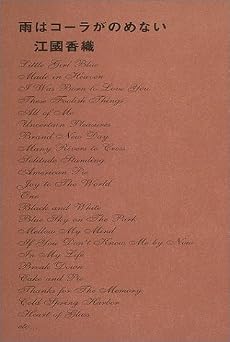 雨はコーラがのめない
江國香織
Little Girl Blue
Made in Heaven
I Was Born to Love You
These Foolish Things
All of Me
Uncertain Pleasures
Brand New Day
Many Rivers to Cross
Solitude Standing
American Pie
Joy to The World
Ene
Black and White
Blue Sky on The Park
Mellow My Mind
If You Don't Know Me by Now
In My Life
Break Down
Cake and Pie
Thanks for The Memory
Cold Spring Harbor
Heart of Glass
etc...